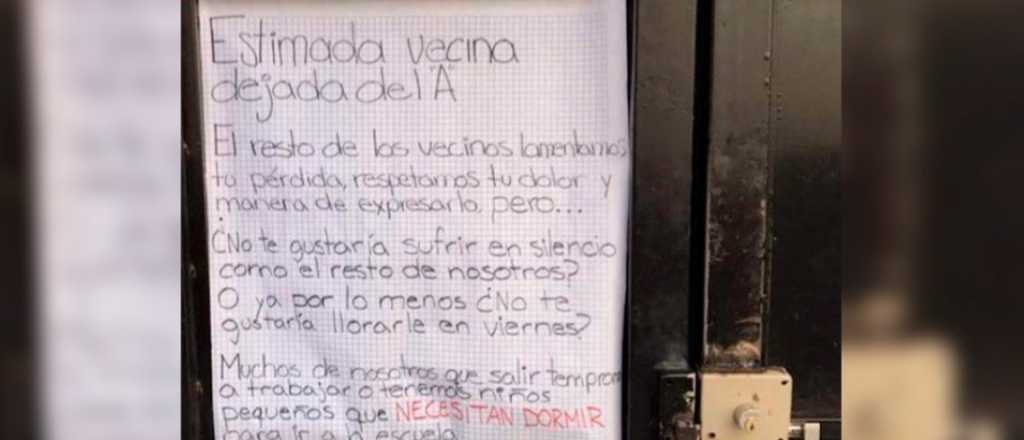 Estimada vecina
dejada del "A"
El resto de los vecinos lamentamos
tu pérdida, respetamos tu dolor y
manera de expresarlo, pero...
¿No te gustaría sufrir en silencio
como el resto de nosotros?
O ya por lo menos ¿No te
gustaría llorarle en viernes?
Muchos de nosotros que salir temprano
a trabajar o tenemos niños
pequeños que NECESITAN DORMIR
para ir a la escuela